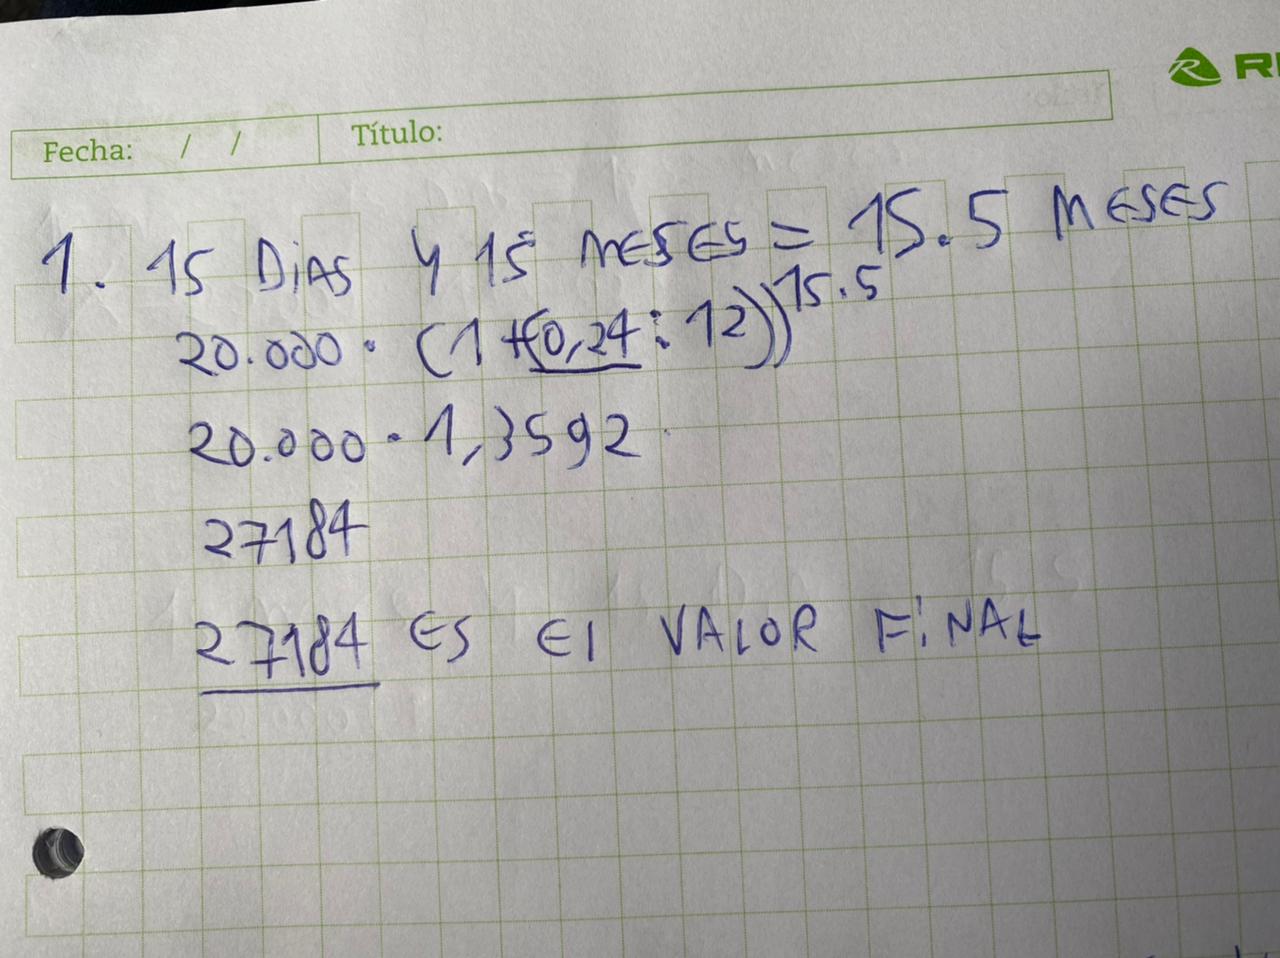 Fecha: / / Título:
1. 15 DiAS Y 15 MESES = 15.5 MESES
20.000 · (1+(0,24 : 12))^15.5
20.000 · 1,3592
27184
27184 ES El VALOR FiNAL